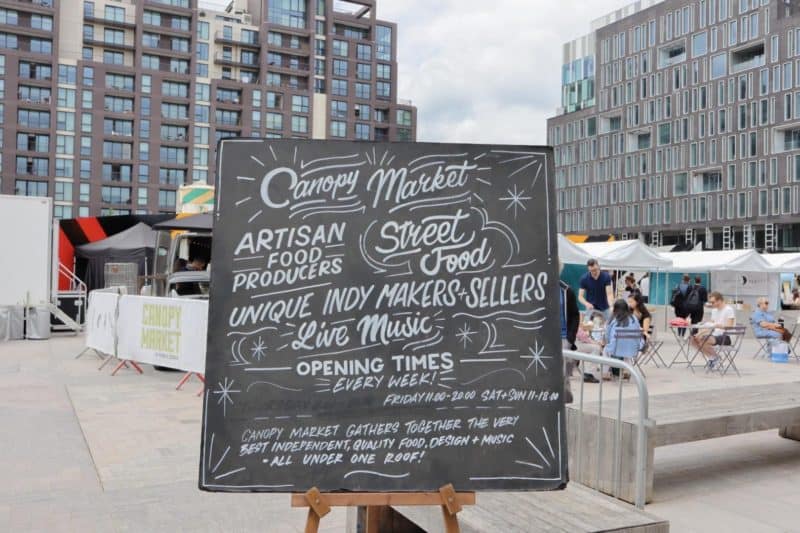 Canopy Market
ARTISAN
FOOD
PRODUCERS
Street
Food
UNIQUE INDY MAKERS + SELLERS
Live Music
OPENING TIMES
EVERY WEEK!
FRIDAY 11.00-20.00 SAT+SUN 11-18.00
CANOPY MARKET GATHERS TOGETHER THE VERY
BEST INDEPENDENT, QUALITY FOOD, DESIGN + MUSIC
- ALL UNDER ONE ROOF!
CANOPY
MARKET